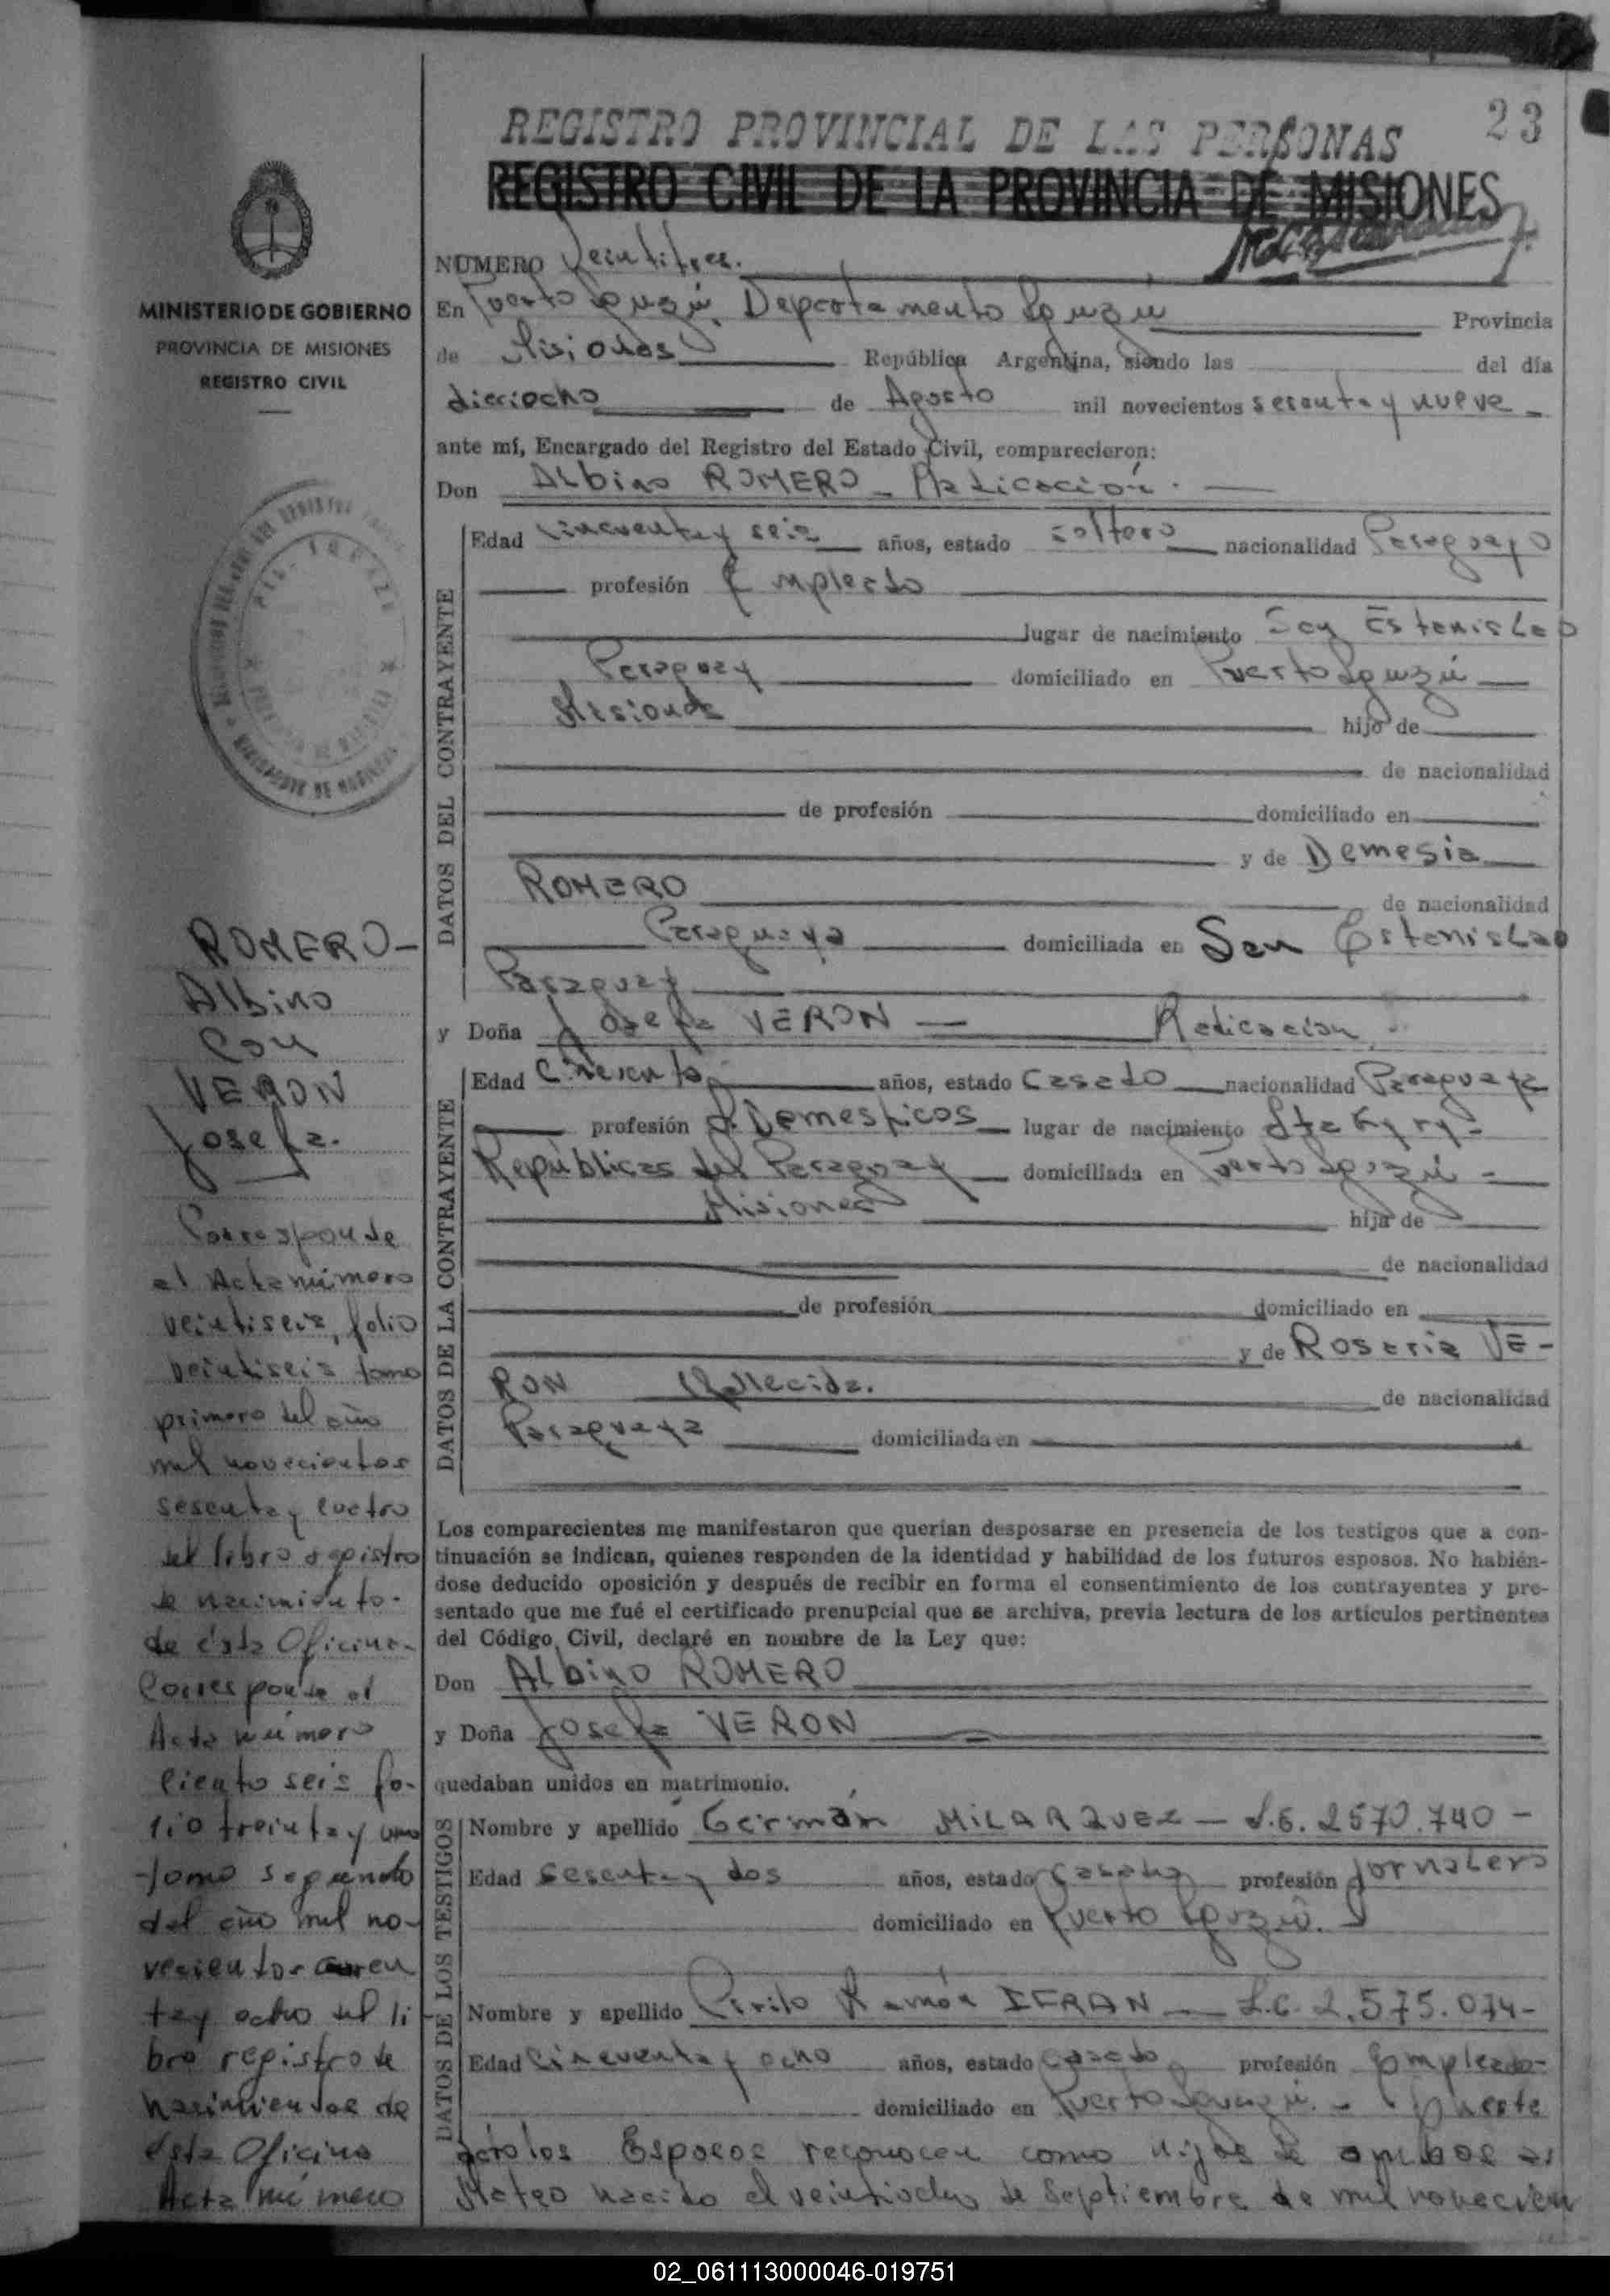 23
REGISTRO PROVINCIAL DE LAS PERSONAS
REGISTRO CIVIL DE LA PROVINCIA DE MISIONES
MINISTERIO DE GOBIERNO
PROVINCIA DE MISIONES
REGISTRO CIVIL
ROMERO-
Albino
Con
VERON
Josefa.
Corresponde
al Acta número
veintiseis, folio
veintiseis tomo
primero del año
mil novecientos
sesenta y cuatro
del libro registro
de nacimiento.
de ésta Oficina.
Corresponde al
Acta número
ciento seis fo-
lio treinta y uno
tomo segundo
del año mil no-
vecientos cuaren
ta y ocho del li
bro registro de
nacimientos de
ésta Oficina
Acta número
NUMERO Veintitres.
En Puerto Iguazú Departamento Iguazú Provincia
de Misiones República Argentina, siendo las del día
dieciocho de Agosto mil novecientos sesenta y nueve
ante mí, Encargado del Registro del Estado Civil, comparecieron:
Don Albino ROMERO
DATOS DEL CONTRAYENTE
Edad cincuenta y seis años, estado soltero nacionalidad Paraguayo
profesión Empleado
lugar de nacimiento San Estanislao
Paraguay domiciliado en Puerto Iguazú
Misiones hijo de
de nacionalidad
de profesión domiciliado en
y de Demesia
ROMERO de nacionalidad
Paraguaya domiciliada en San Estanislao
Paraguay
y Doña Josefa VERON
DATOS DE LA CONTRAYENTE
Edad años, estado Casado nacionalidad Paraguaya
profesión Q. Domesticos lugar de nacimiento
Repúblicas del Paraguay domiciliada en Puerto Iguazú
Misiones hija de
de nacionalidad
de profesión domiciliado en
y de Rosaria VE-
RON fallecida. de nacionalidad
Paraguaya domiciliada en
Los comparecientes me manifestaron que querían desposarse en presencia de los testigos que a con-
tinuación se indican, quienes responden de la identidad y habilidad de los futuros esposos. No habién-
dose deducido oposición y después de recibir en forma el consentimiento de los contrayentes y pre-
sentado que me fué el certificado prenupcial que se archiva, previa lectura de los artículos pertinentes
del Código Civil, declaré en nombre de la Ley que:
Don Albino ROMERO
y Doña Josefa VERON
quedaban unidos en matrimonio.
DATOS DE LOS TESTIGOS
Nombre y apellido Germán MILARQUEZ - 2570.740 -
Edad sesenta y dos años, estado casado profesión Jornalero
domiciliado en Puerto Iguazú.
Nombre y apellido Cirilo Ramón IFRAN 2.575.074-
Edad cincuenta y ocho años, estado casado profesión Empleado-
domiciliado en Puerto Iguazú. - En este
acto los Esposos reconocen como hijos de ambos a:
Mateo nacido el veintiocho de Septiembre de mil novecien
02_061113000046-019751